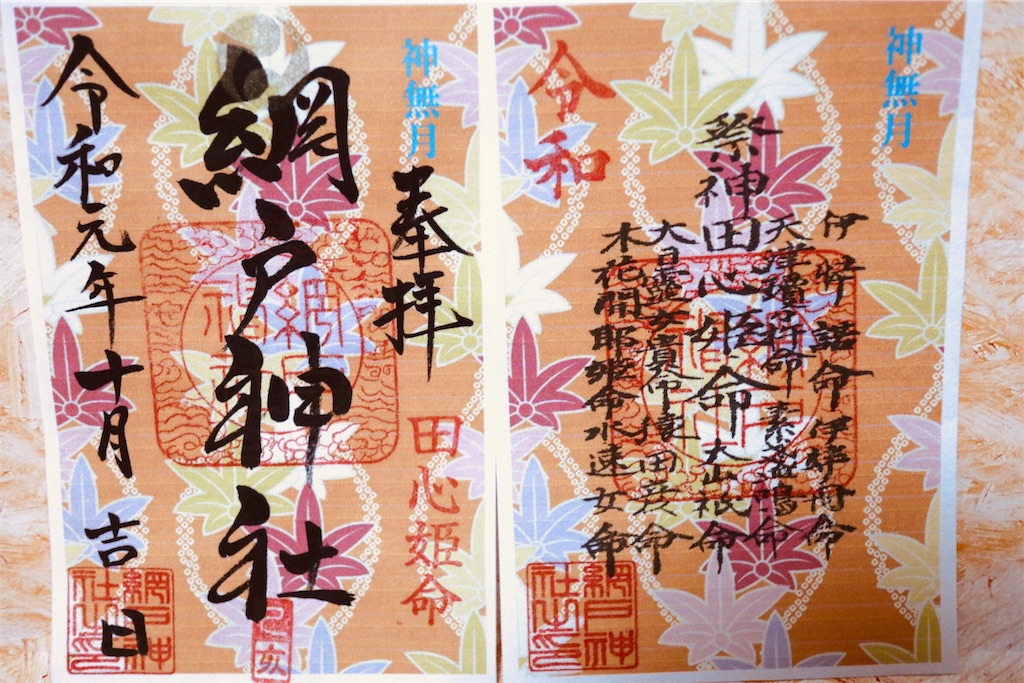 神無月
奉拝
田心姫命
網戸神社
己亥
令和元年十月吉日
網戸神社之印
神無月
伊弉諾命 伊弉冉命
天津瓊瓊杵命 素盞嗚命
祭神 田心姫命 大山祇命
大日孁女貴命 猿田彦命
木花開耶姫命 水速女命
令和
網戸神社之印